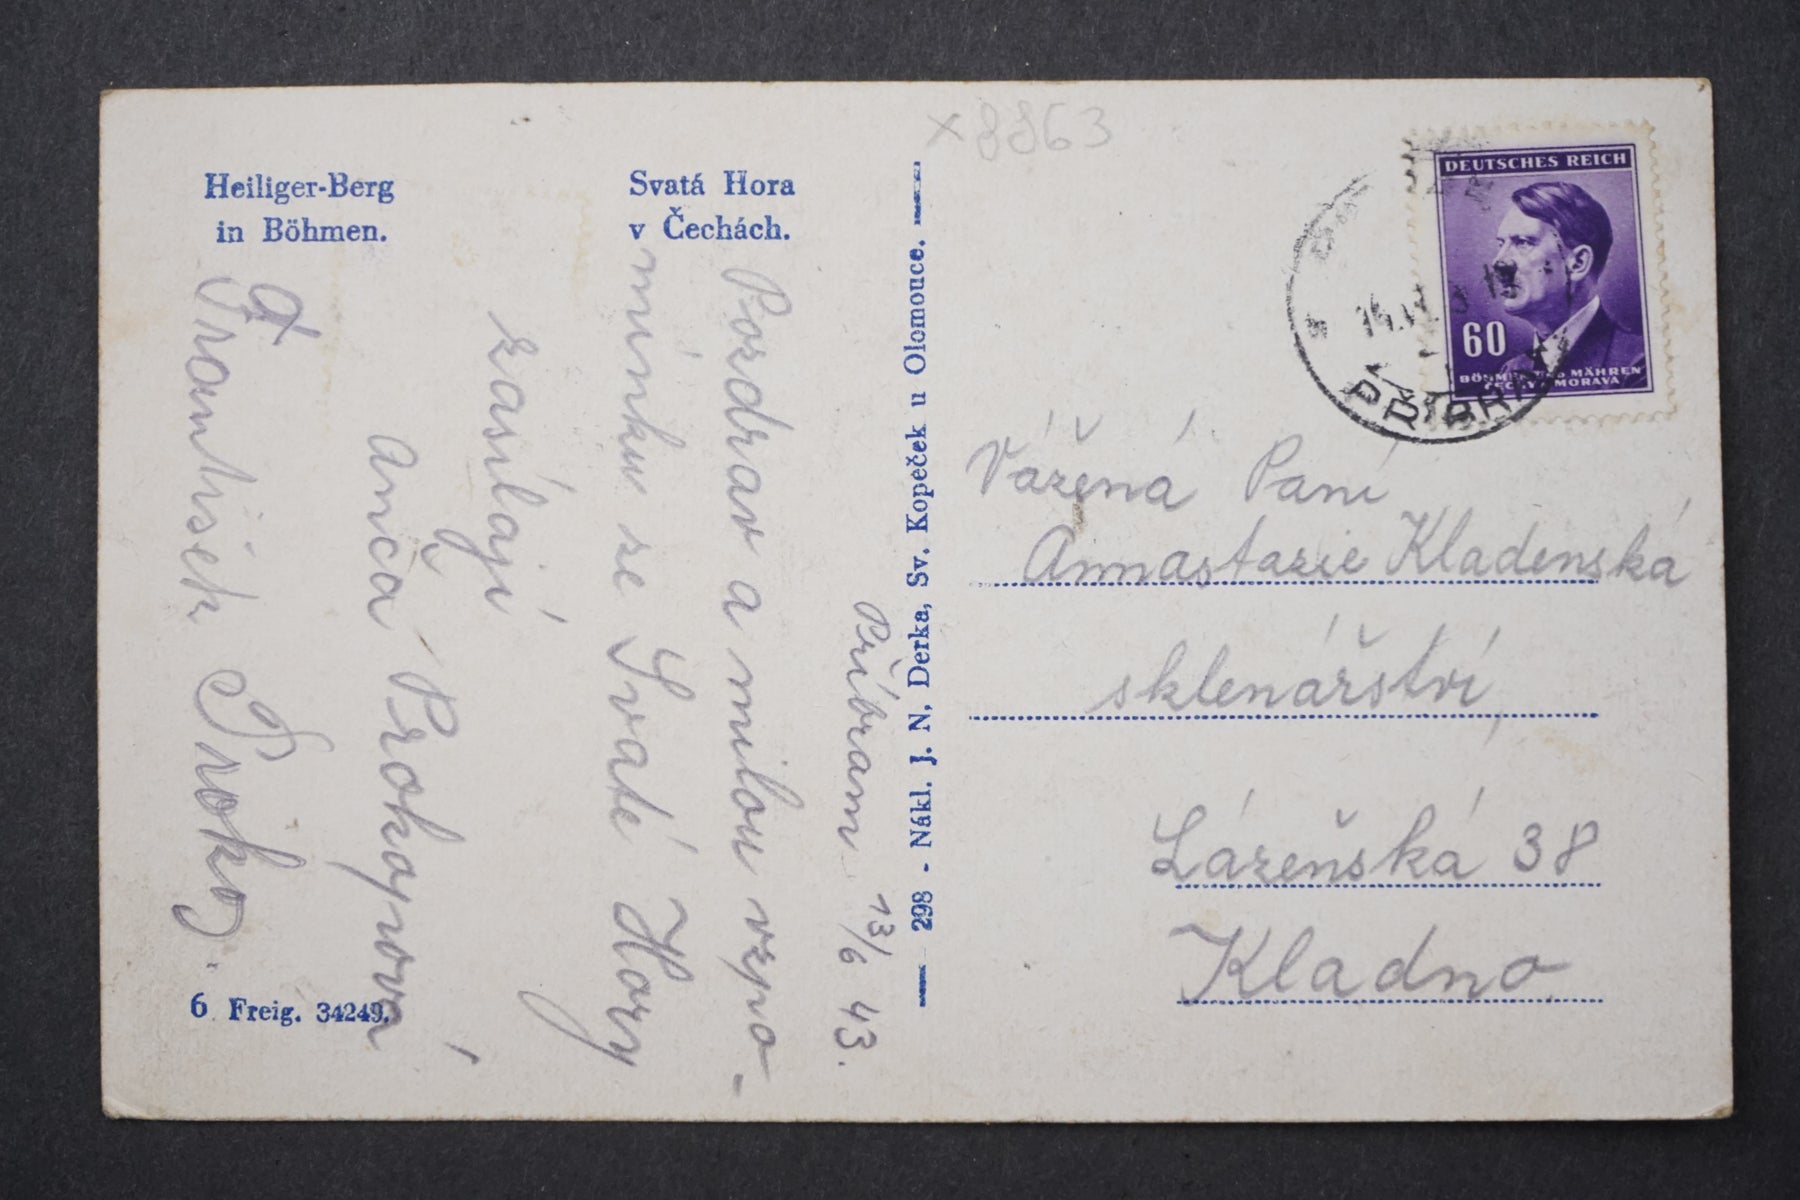 Heiliger-Berg
in Böhmen.
Svatá Hora
v Čechách.
Příbram 13/6 43.
Pozdrav a milou vzpo-
mínku ze Svaté Hory
zasílají
Anča Prokopová
a
František Prokop.
6 Freig. 34249.
298 - Nákl. J. N. Derka, Sv. Kopeček u Olomouce.
x 8863
DEUTSCHES REICH
60
BÖHMEN UND MÄHREN
ČECHY A MORAVA
PŘÍBRAM
Vážená Paní
Annastazie Kladenská
sklenářství,
Lázeňská 38
Kladno